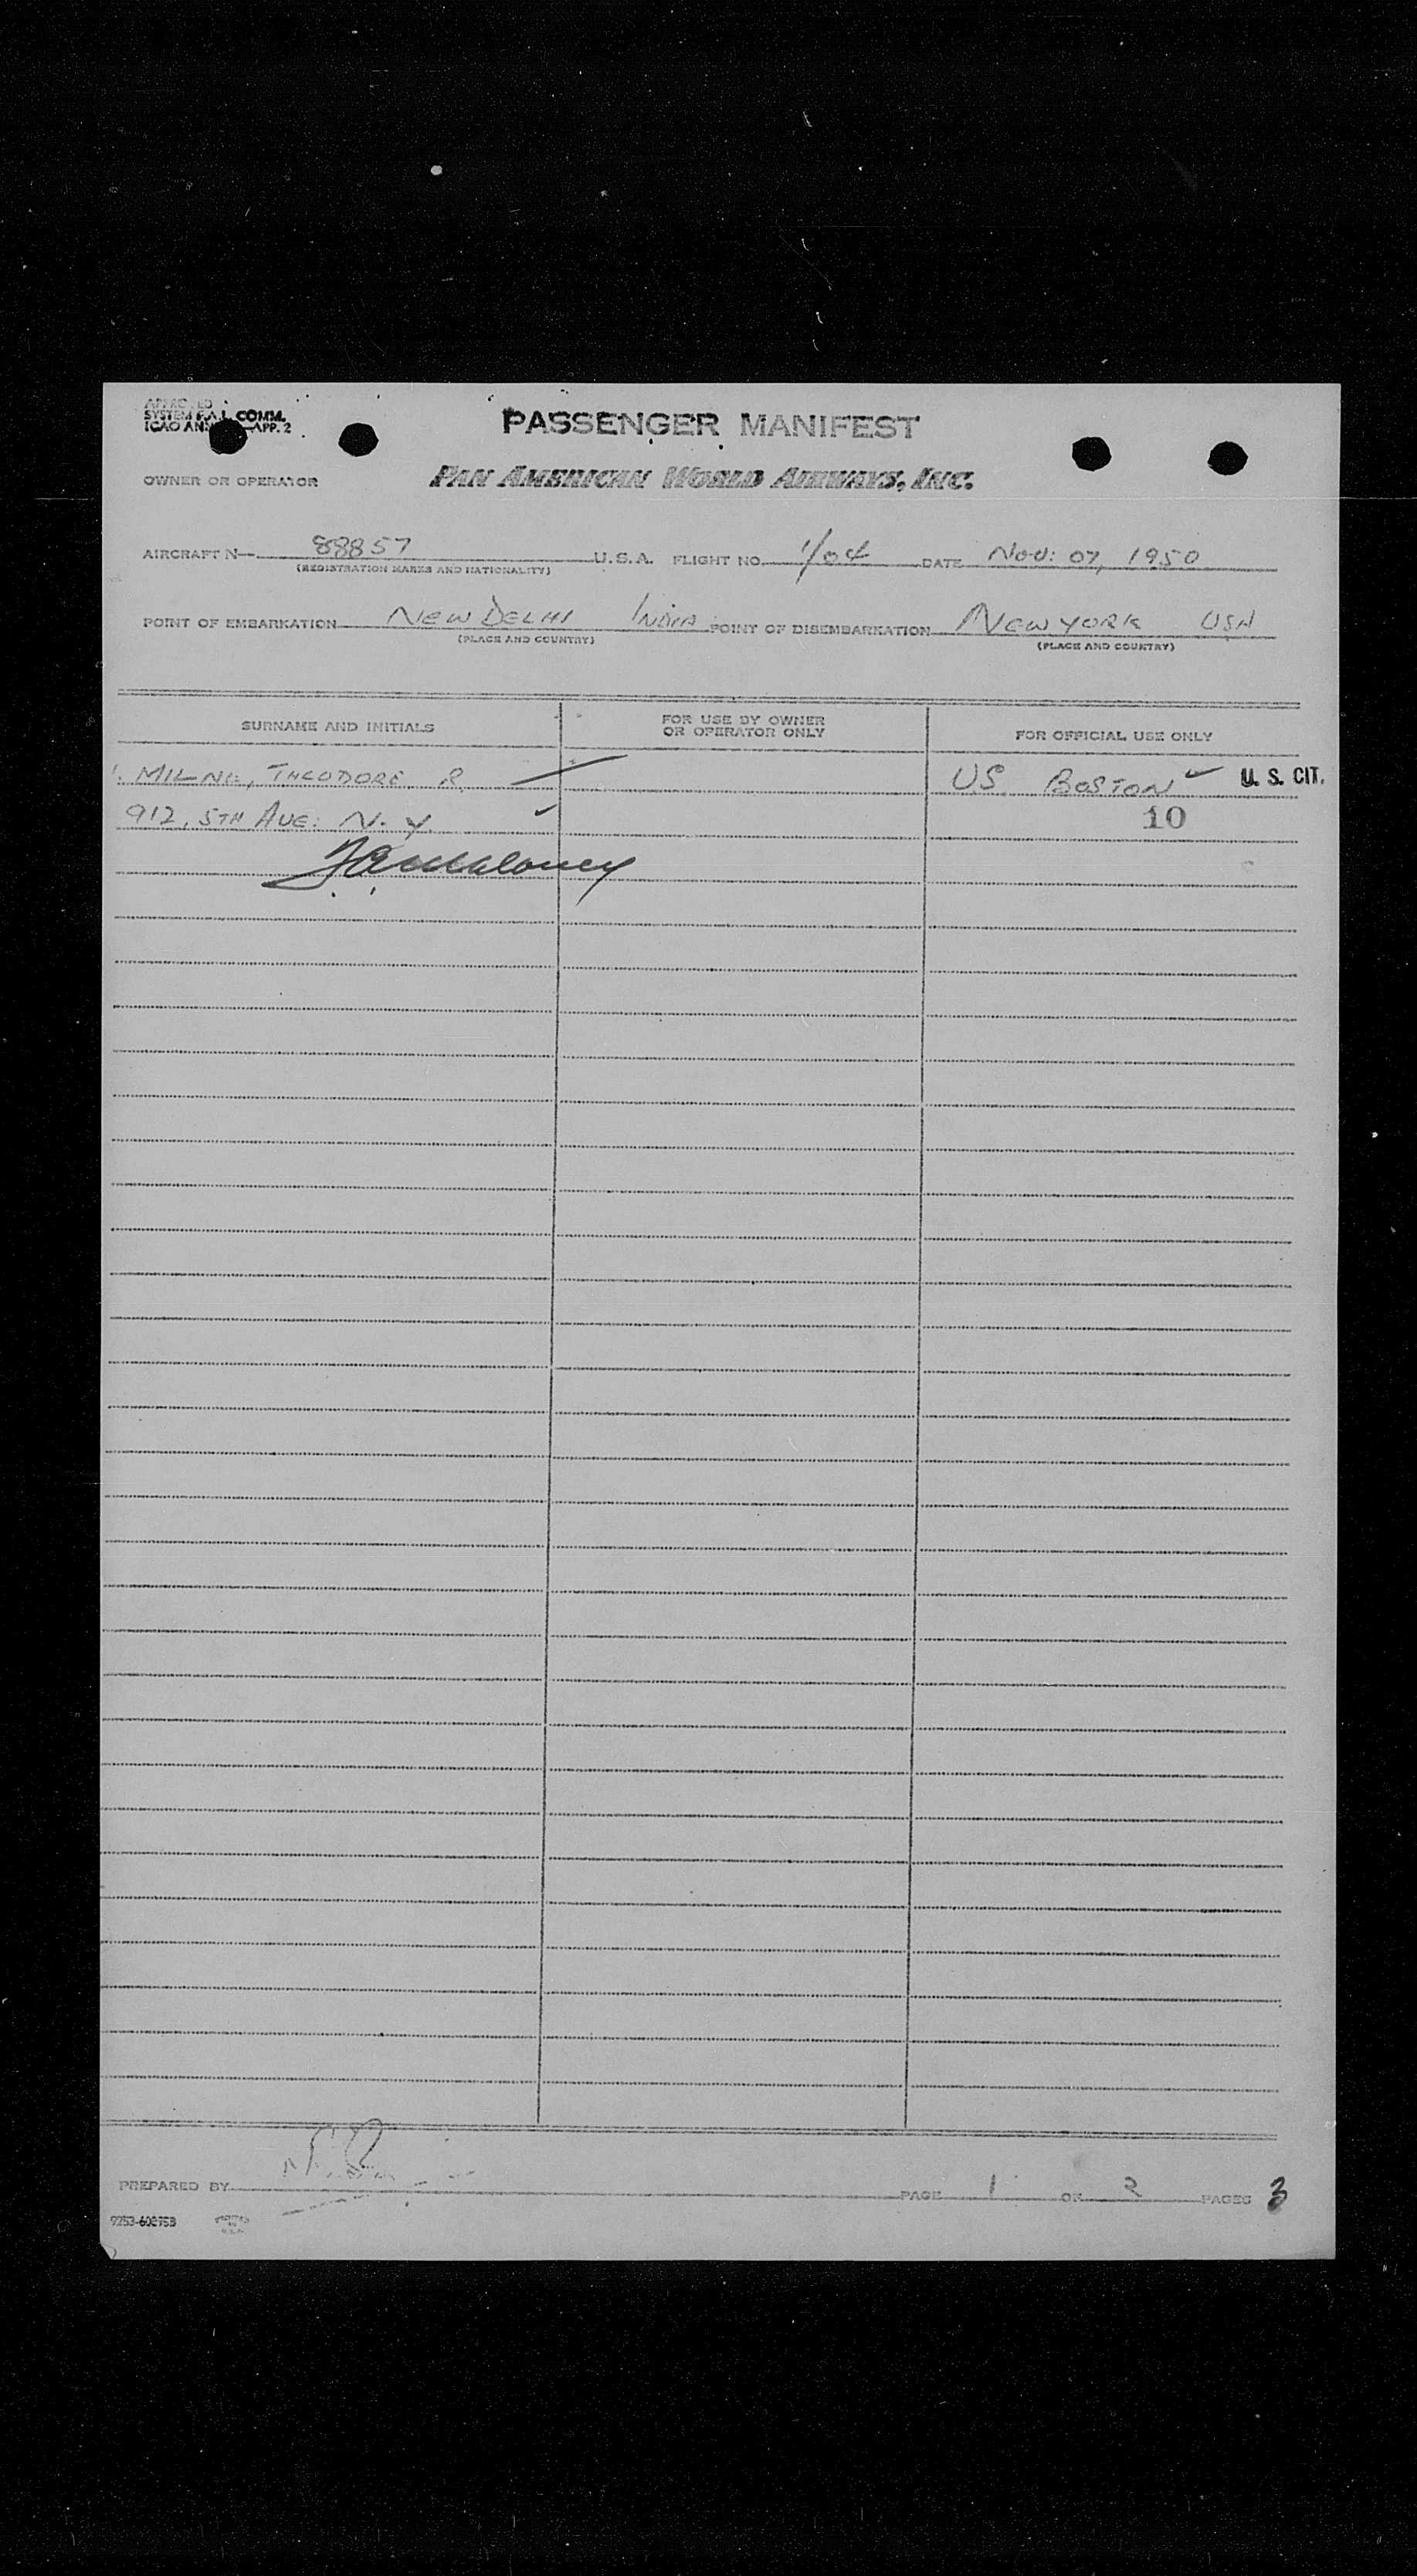 APPROVED
SYSTEM F.A.L. COMM.
ICAO APP. 2
PASSENGER MANIFEST
OWNER OR OPERATOR PAN AMERICAN WORLD AIRWAYS, INC.
AIRCRAFT N— 88857 U.S.A. FLIGHT NO. 1/04 DATE NOV: 07, 1950
(REGISTRATION MARKS AND NATIONALITY)
POINT OF EMBARKATION NEW DELHI INDIA POINT OF DISEMBARKATION NEW YORK USA
(PLACE AND COUNTRY) (PLACE AND COUNTRY)
SURNAME AND INITIALS FOR USE BY OWNER OR OPERATOR ONLY FOR OFFICIAL USE ONLY
1. MILNE, THEODORE R. US BOSTON ✓ U. S. CIT.
912, 5TH AVE: N. Y. ✓ 10
PREPARED BY PAGE 1 OF 2 PAGES 3
9253-602753 PRINTED IN U.S.A.